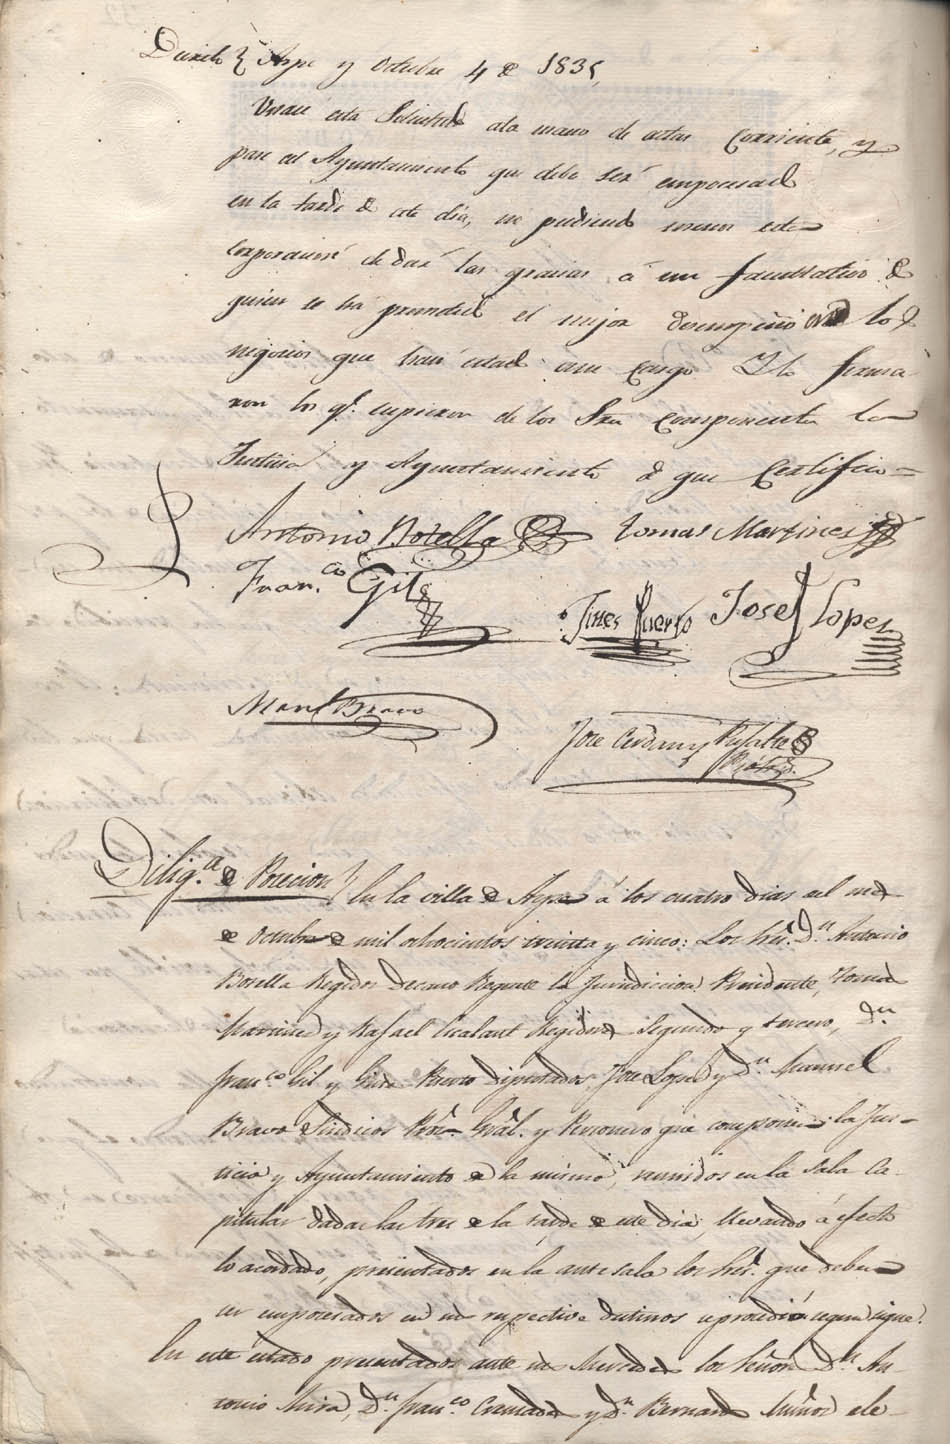 Aspe y Octubre 4 de 1835,
Unase esta Solicitud ala mano de actas Corriente, y
pase al Ayuntamiento que debe ser emposesad
en la tarde de este dia, no pudiendo menos este
Corporacion de dar las gracias á un facultativo de
quien se ha prometido el mejor desempeño en los
negocios que han estado a su cargo Y lo firma
ron los qe. supieron de los Sres componentes la
Justicia y Ayuntamiento de que Certifico =
Antonio Botella tomas Martines
Fran.co Gil
Jines Puerto Josef Lopez
Manl Bravo
Jose Cerdan y
Dilig.a de Posecion En la villa de Aspe á los cuatro dias del mes
de Octubre de mil ochocientos treinta y cinco: Los Sres. Dn. Antonio
Botella Regidor Decano Regente la Jurisdiccion Presidente, Tomas
Martines y Rafael Regidores Segundo y tercero, Dn
Franco Gil y Gines Puerto Diputados, Jose Lopez y Dn Manuel
Bravo Sindicos Pror. Gral. y Personero que componen la Jus-
ticia y Ayuntamiento de la misma, reunidos en la Sala Ca-
pitular dadas las tres de la tarde de este dia, llevando á efecto
lo acordado, presentados en la antesala los Sres. que deben
ser emposesados en sus respectivos destinos se procedió segun sigue.
En este estado presentados ante sus Mercedes los Señores Dn An-
tonio Mira, Dn Franco Cremades y Dn Bernardo Muñoz ele-